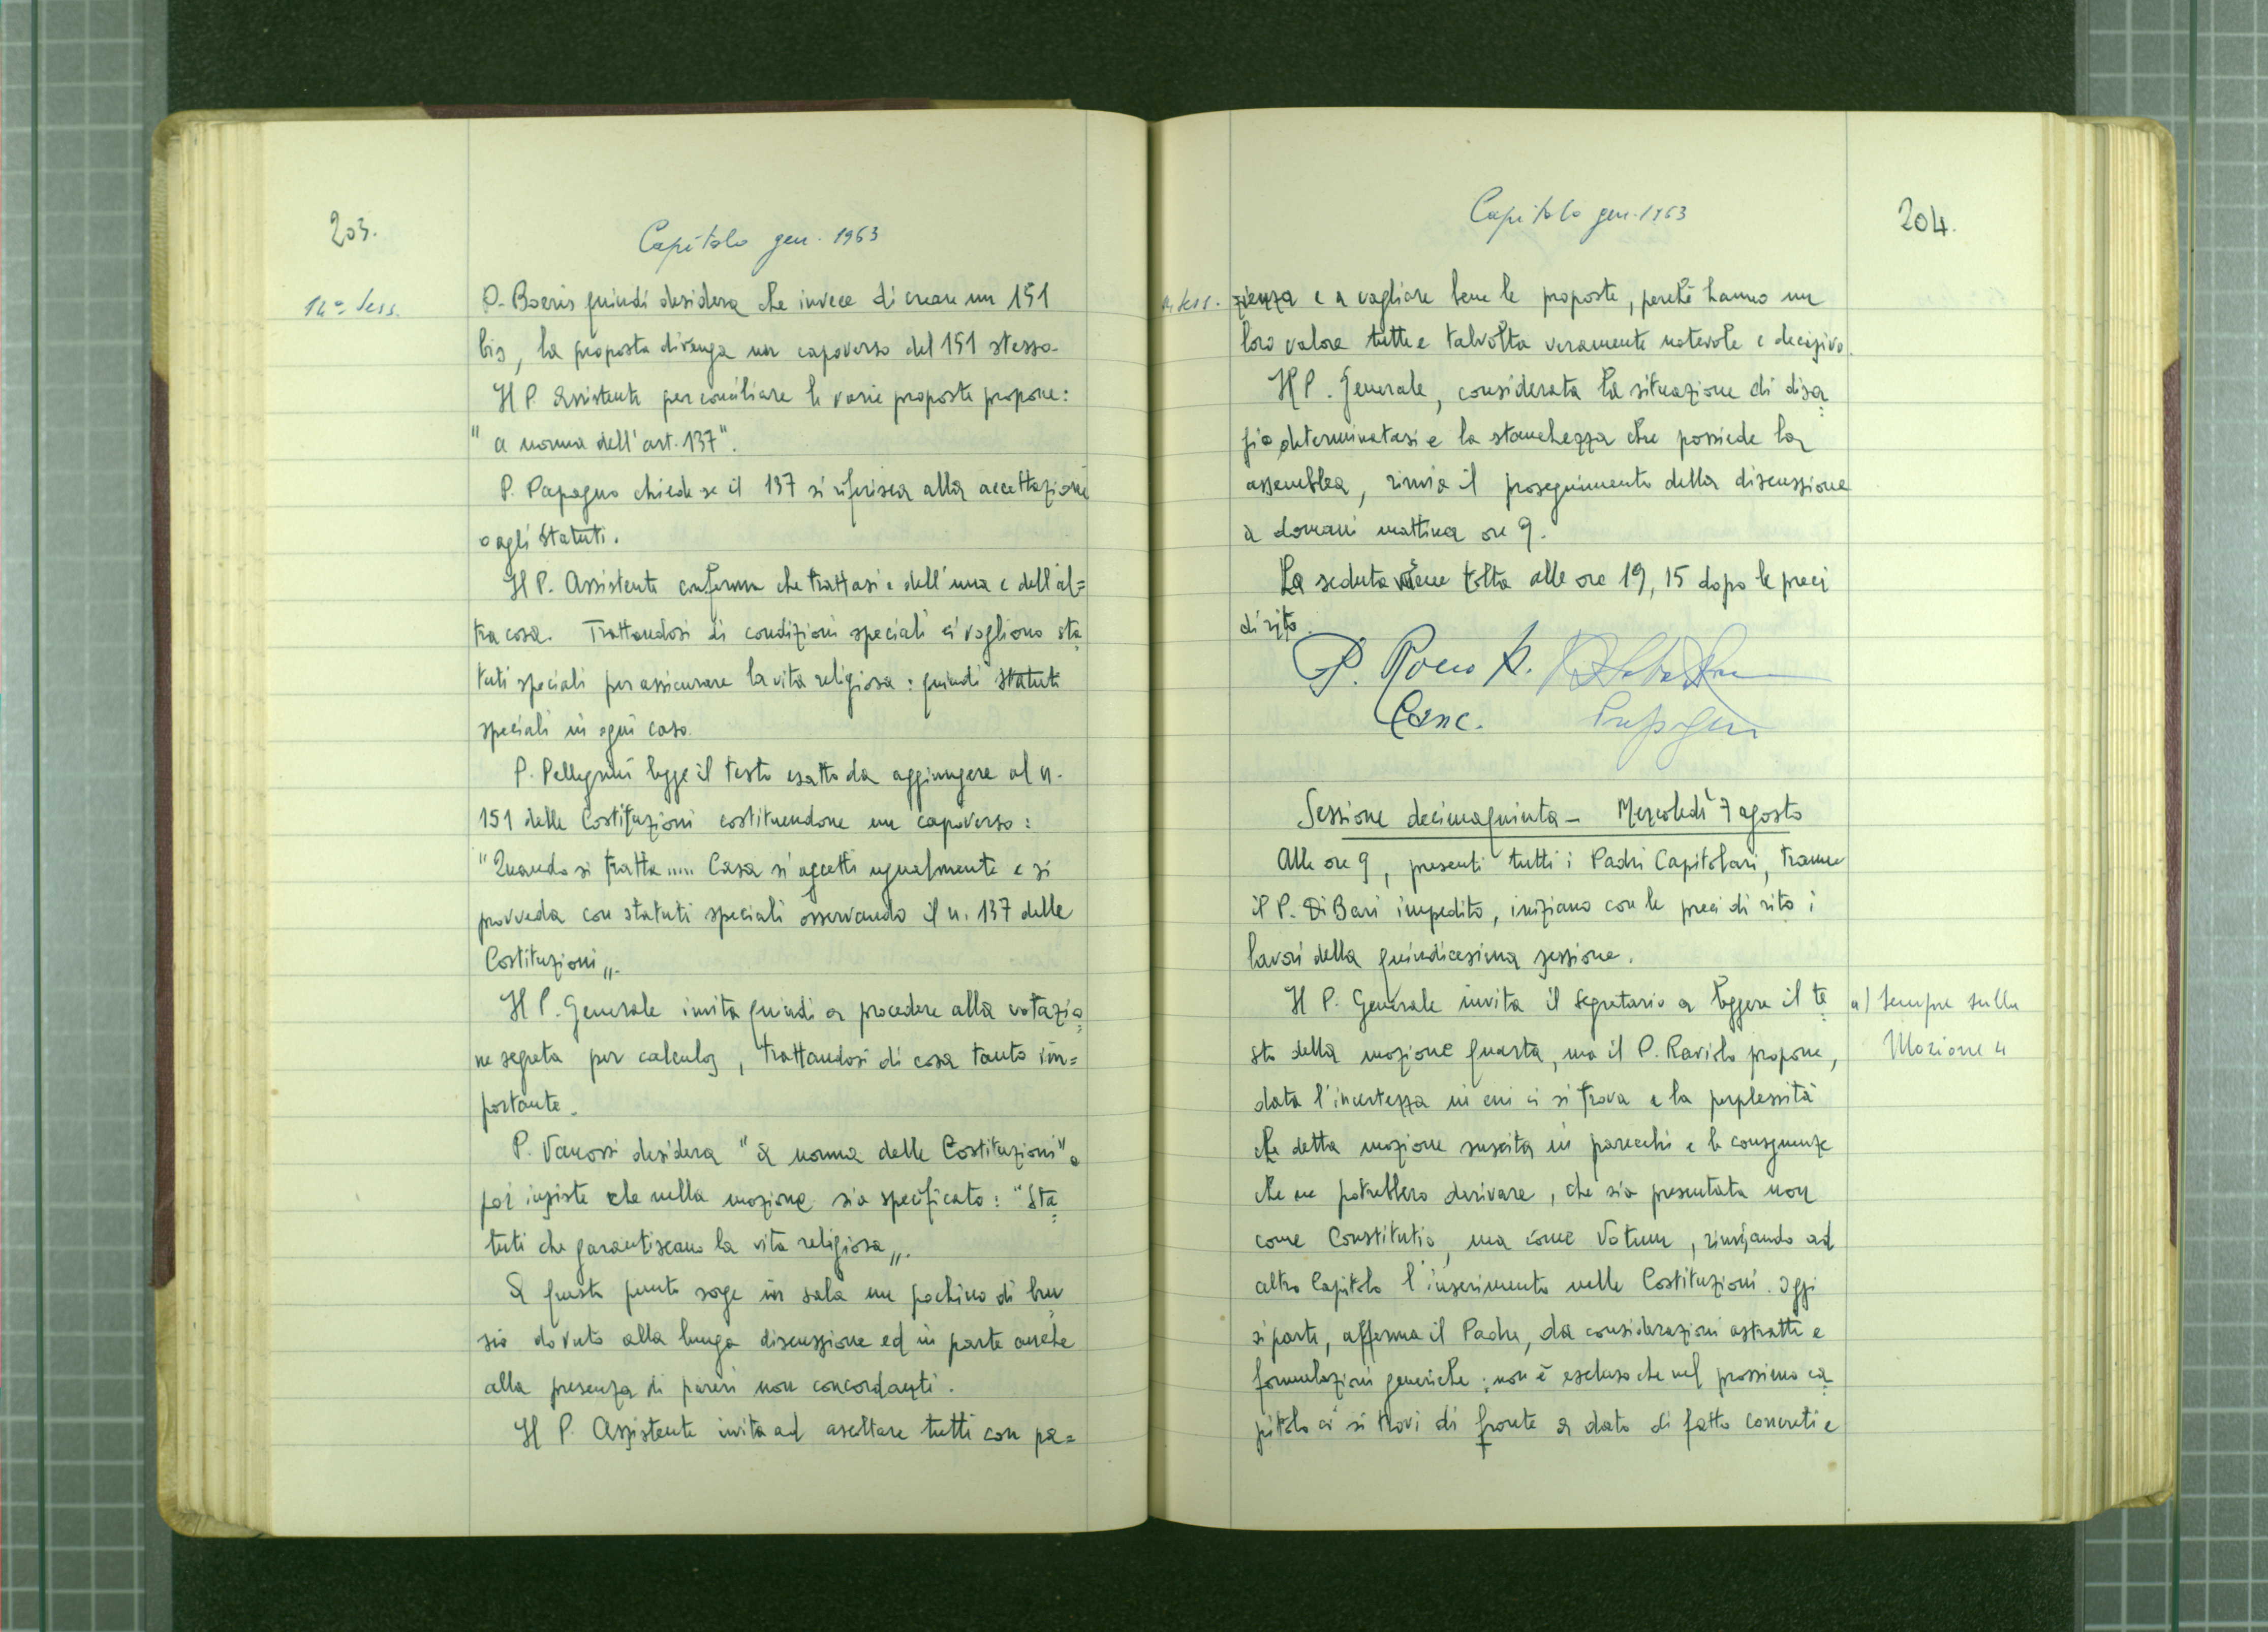 203.
Capitolo gen. 1963
14ª Sess.
P. Boeris quindi desidera che invece di creare un 151
bis, la proposta divenga un capoverso del 151 stesso.
Il P. Assistente per conciliare le varie proposte propone:
" a norma dell'art. 137".
P. Papagno chiede se il 137 si riferisca alla accettazione
o agli Statuti.
Il P. Assistente conferma che trattasi e dell'una e dell'al=
tra cosa. Trattandosi di condizioni speciali ci vogliono sta=
tuti speciali per assicurare la vita religiosa: quindi statuti
speciali in ogni caso.
P. Pellegrini legge il testo esatto da aggiungere al n.
151 delle Costituzioni costituendone un capoverso:
"Quando si tratta ..... Casa si accetti ugualmente e si
provveda con statuti speciali osservando il n. 137 delle
Costituzioni„.
Il P. Generale invita quindi a procedere alla votazio=
ne segreta per calculos, trattandosi di cosa tanto im=
portante.
P. Vanossi desidera "a norma delle Costituzioni" e
poi insiste che nella mozione sia specificato: "Sta=
tuti che garantiscano la vita religiosa„.
A questo punto sorge in sala un pochino di bru=
sio dovuto alla lunga discussione ed in parte anche
alla presenza di pareri non concordanti.
Il P. Assistente invita ad ascoltare tutti con pa=
Capitolo gen. 1963
204.
14 sess.
zienza e a vagliare bene le proposte, perchè hanno un
loro valore tutte e talvolta veramente notevole e decisivo.
Il P. Generale, considerata la situazione di disa=
gio determinatasi e la stanchezza che possiede la
assemblea, rinvia il proseguimento della discussione
a domani mattina ore 9.
La seduta viene tolta alle ore 19,15 dopo le preci
di rito.
P. Rocco
Canc. Prep. Gen
Sessione decimaquinta - Mercoledì 7 agosto
Alle ore 9, presenti tutti i Padri Capitolari, tranne
il P. Di Bari impedito, iniziano con le preci di rito i
lavori della quindicesima sessione.
Il P. Generale invita il Segretario a leggere il te=
a) sempre sulla
Mozione 4
sto della mozione quarta, ma il P. Raviolo propone,
data l'incertezza in cui ci si trova e la perplessità
che detta mozione suscita in parecchi e le conseguenze
che ne potrebbero derivare, che sia presentata non
come Constitutio, ma come Votum, rinviando ad
altro Capitolo l'inserimento nelle Costituzioni. Oggi
si parte, afferma il Padre, da considerazioni astratte e
formulazioni generiche; non è escluso che nel prossimo ca=
pitolo ci si trovi di fronte a dato di fatto concreti e